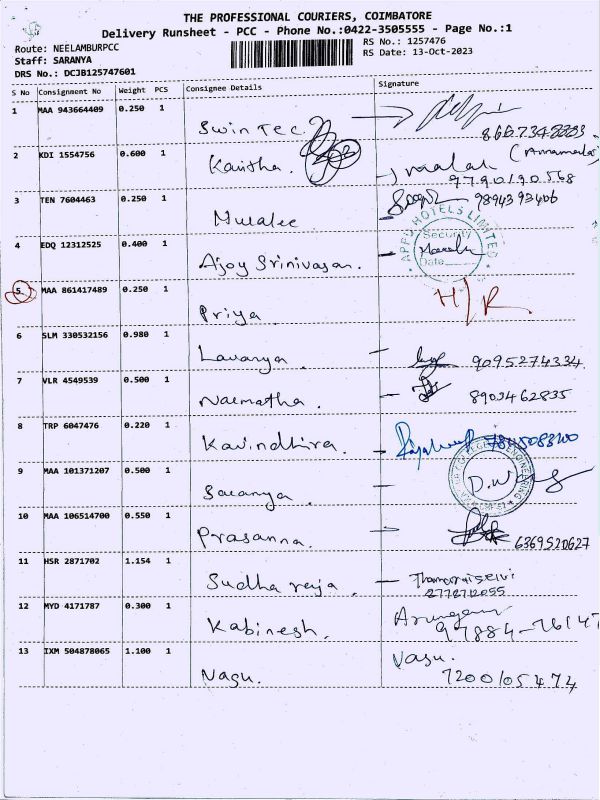 THE PROFESSIONAL COURIERS, COIMBATORE
Delivery Runsheet - PCC - Phone No.:0422-3505555 - Page No.:1
Route: NEELAMBURPCC
RS No.: 1257476
Staff: SARANYA
RS Date: 13-Oct-2023
DRS No.: DCJB125747601
S No Consignment No Weight PCS Consignee Details Signature
1 MAA 943664409 0.250 1 Swin Tec
2 KDI 1554756 0.600 1 Kavitha. (Annamalai)
9790190568
3 TEN 7604463 0.250 1 Muralee 9894393406
APPU HOTELS LIMITED
Security
Date
4 EDQ 12312525 0.400 1 Ajoy Srinivasan.
5 MAA 861417489 0.250 1 Priya. H/R
6 SLM 330532156 0.980 1 Lavanya. 9095274334
7 VLR 4549539 0.500 1 Naematha. 8903462835
8 TRP 6047476 0.220 1 Kavindhira.
9 MAA 101371207 0.500 1 Saranya
10 MAA 106514700 0.550 1 Prasanna. 6369520627
11 HSR 2871702 1.154 1 Sudha raja.
12 MYD 4171787 0.300 1 Kabinesh. Arumugam
13 IXM 504878065 1.100 1 Vasu. Vasu.
7200105474